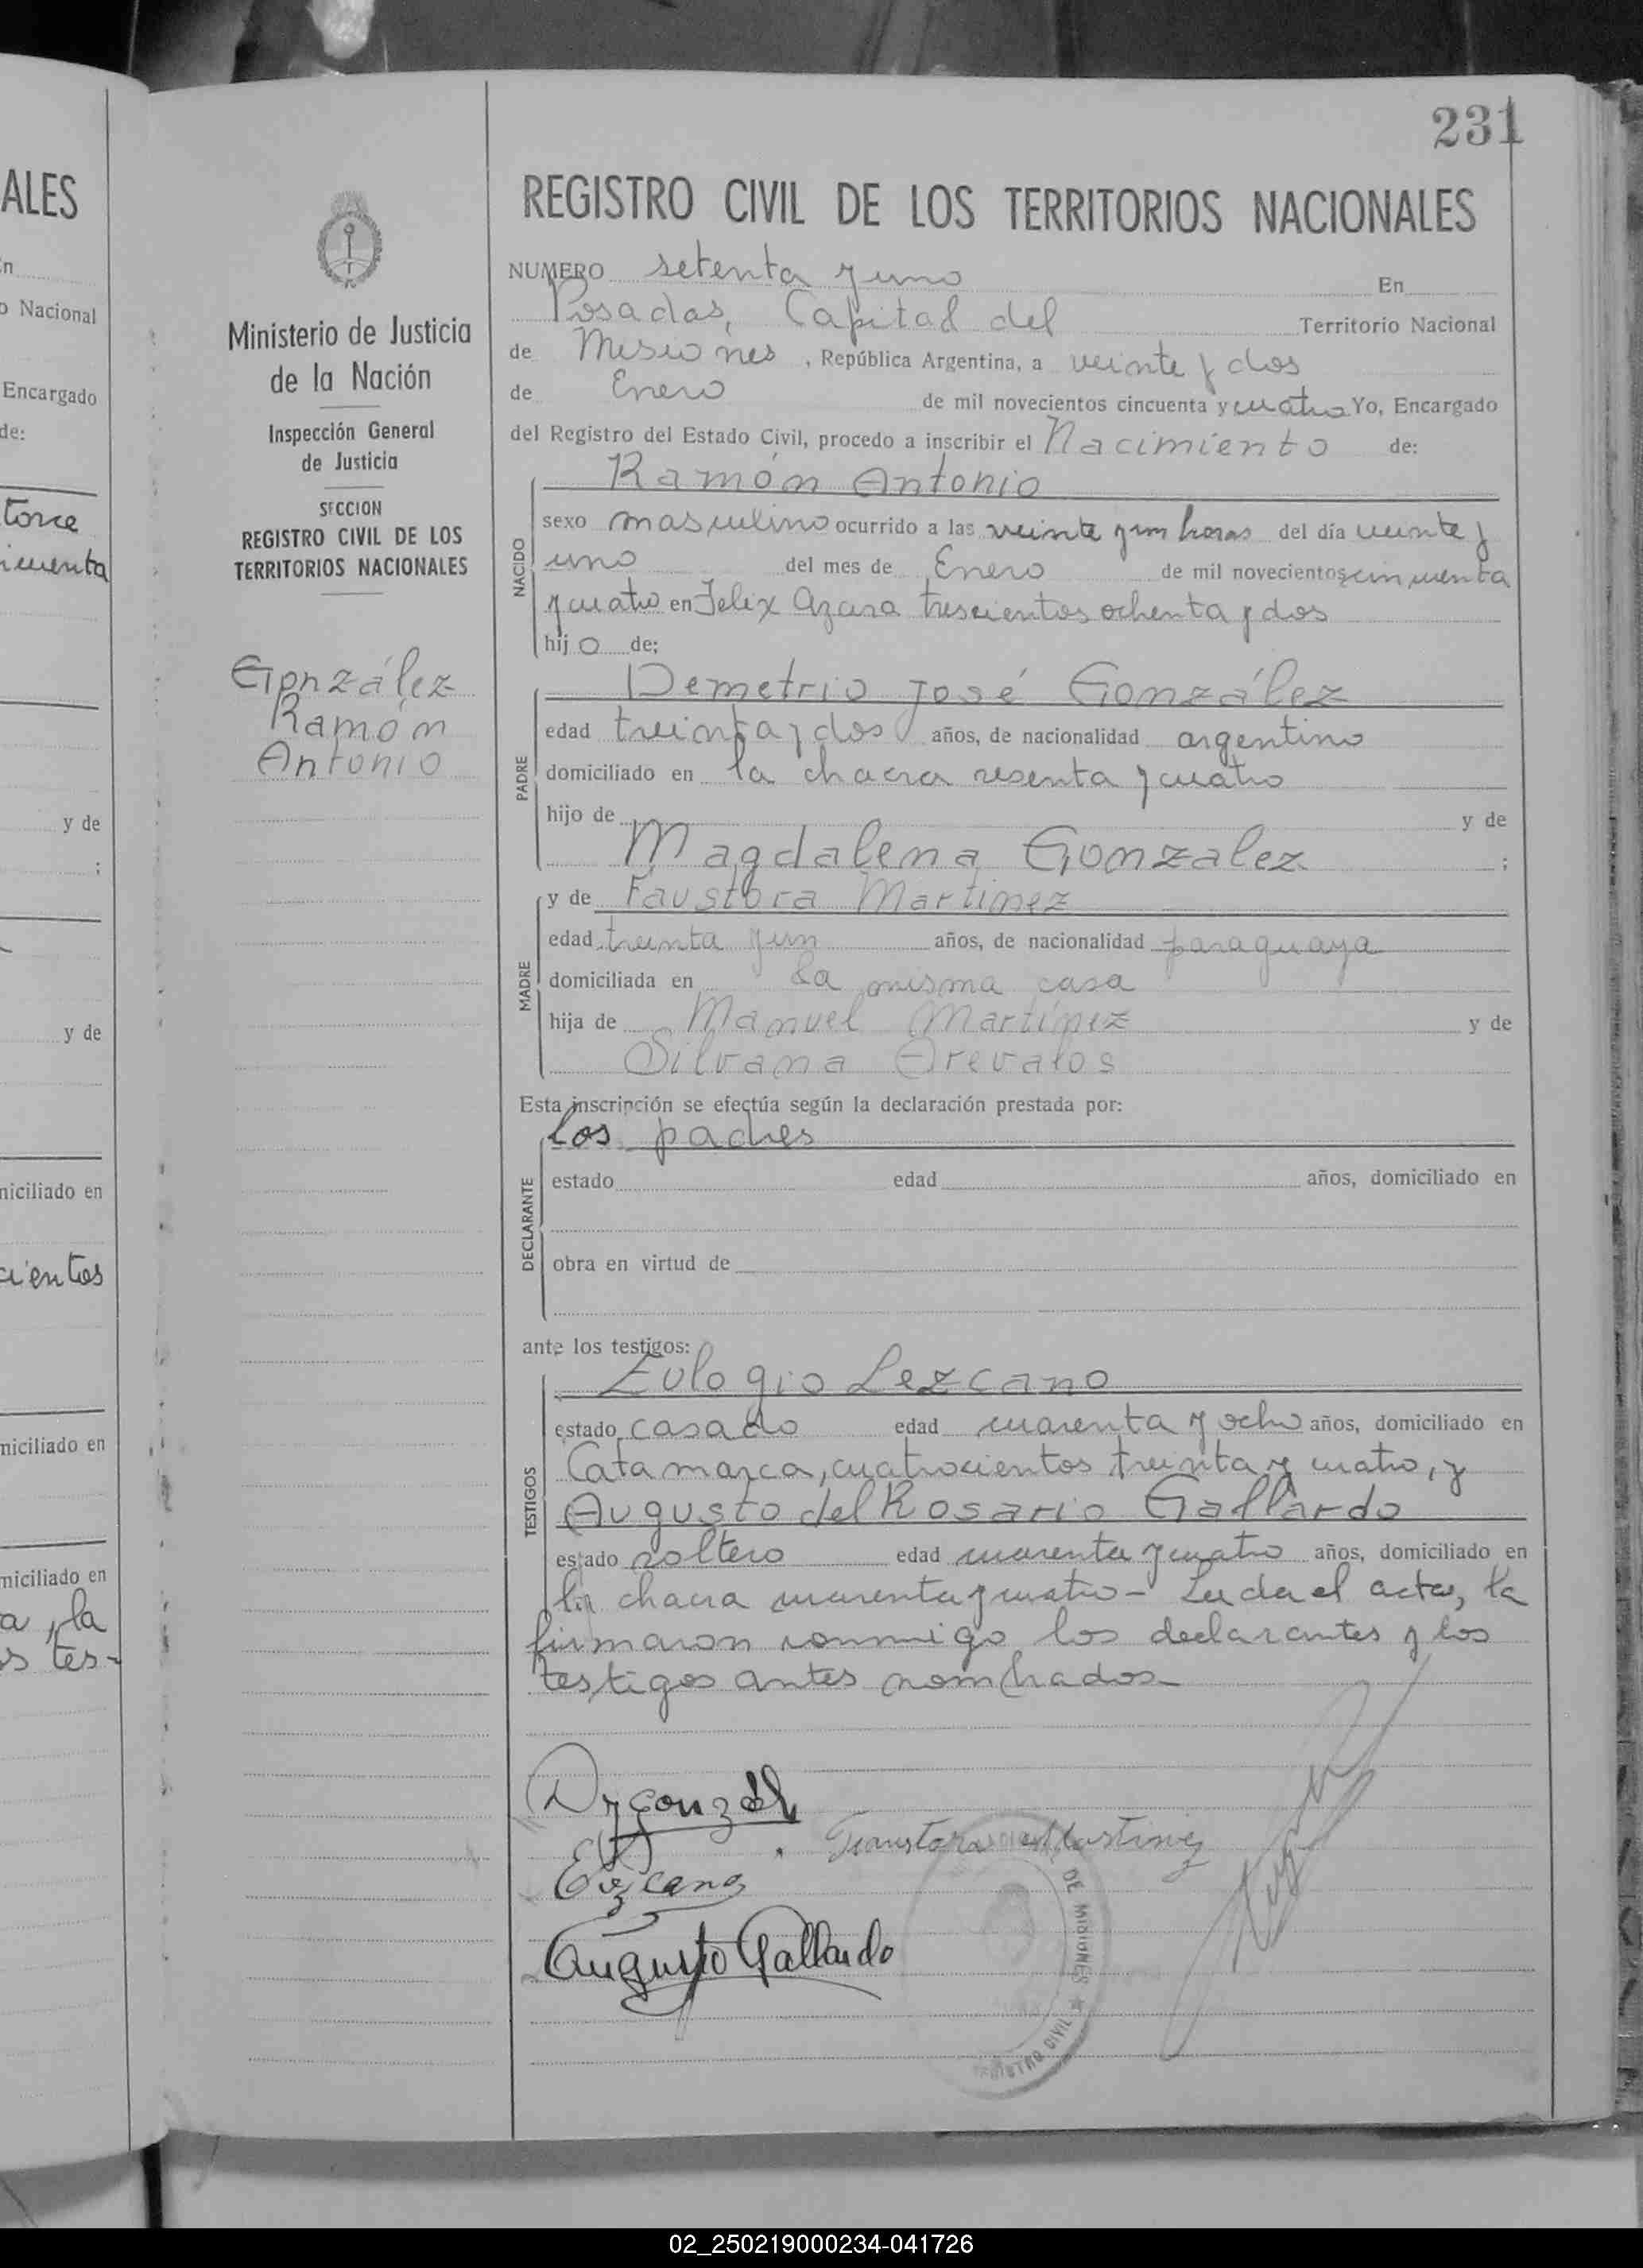 231
ALES
n
o Nacional
Encargado
de:
torce
y de
;
y de
niciliado en
cientos
niciliado en
niciliado en
a, la
s tes-
Ministerio de Justicia
de la Nación
Inspección General
de Justicia
SECCION
REGISTRO CIVIL DE LOS
TERRITORIOS NACIONALES
González
Ramón
Antonio
REGISTRO CIVIL DE LOS TERRITORIOS NACIONALES
NUMERO setenta y uno En
Posadas, Capital del Territorio Nacional
de Misiones, República Argentina, a veinte y dos
de Enero de mil novecientos cincuenta y cuatro Yo, Encargado
del Registro del Estado Civil, procedo a inscribir el Nacimiento de:
Ramón Antonio
NACIDO
sexo masculino ocurrido a las veinte y un horas del día veinte y
uno del mes de Enero de mil novecientos cincuenta
y cuatro en Felix Azara trescientos ochenta y dos
hijo de:
Demetrio José González
PADRE
edad treinta y dos años, de nacionalidad argentino
domiciliado en la chacra sesenta y cuatro
hijo de y de
Magdalena Gonzalez ;
MADRE
y de Faustora Martinez
edad treinta y un años, de nacionalidad paraguaya
domiciliada en la misma casa
hija de Manuel Martínez y de
Silvana Arevalos
Esta inscripción se efectúa según la declaración prestada por:
los padres
DECLARANTE
estado edad años, domiciliado en
obra en virtud de
ante los testigos:
Eulogio Lezcano
TESTIGOS
estado casado edad cuarenta y ocho años, domiciliado en
Catamarca, cuatrocientos treinta y cuatro, y
Augusto del Rosario Gallardo
estado soltero edad cuarenta y cuatro años, domiciliado en
la chacra cuarenta y cuatro - Leida el acta, la
firmaron conmigo los declarantes y los
testigos antes nombrados-
Faustora Martinez
ELezcano
Augusto Gallardo
DE MISIONES
REGISTRO CIVIL
02_250219000234-041726